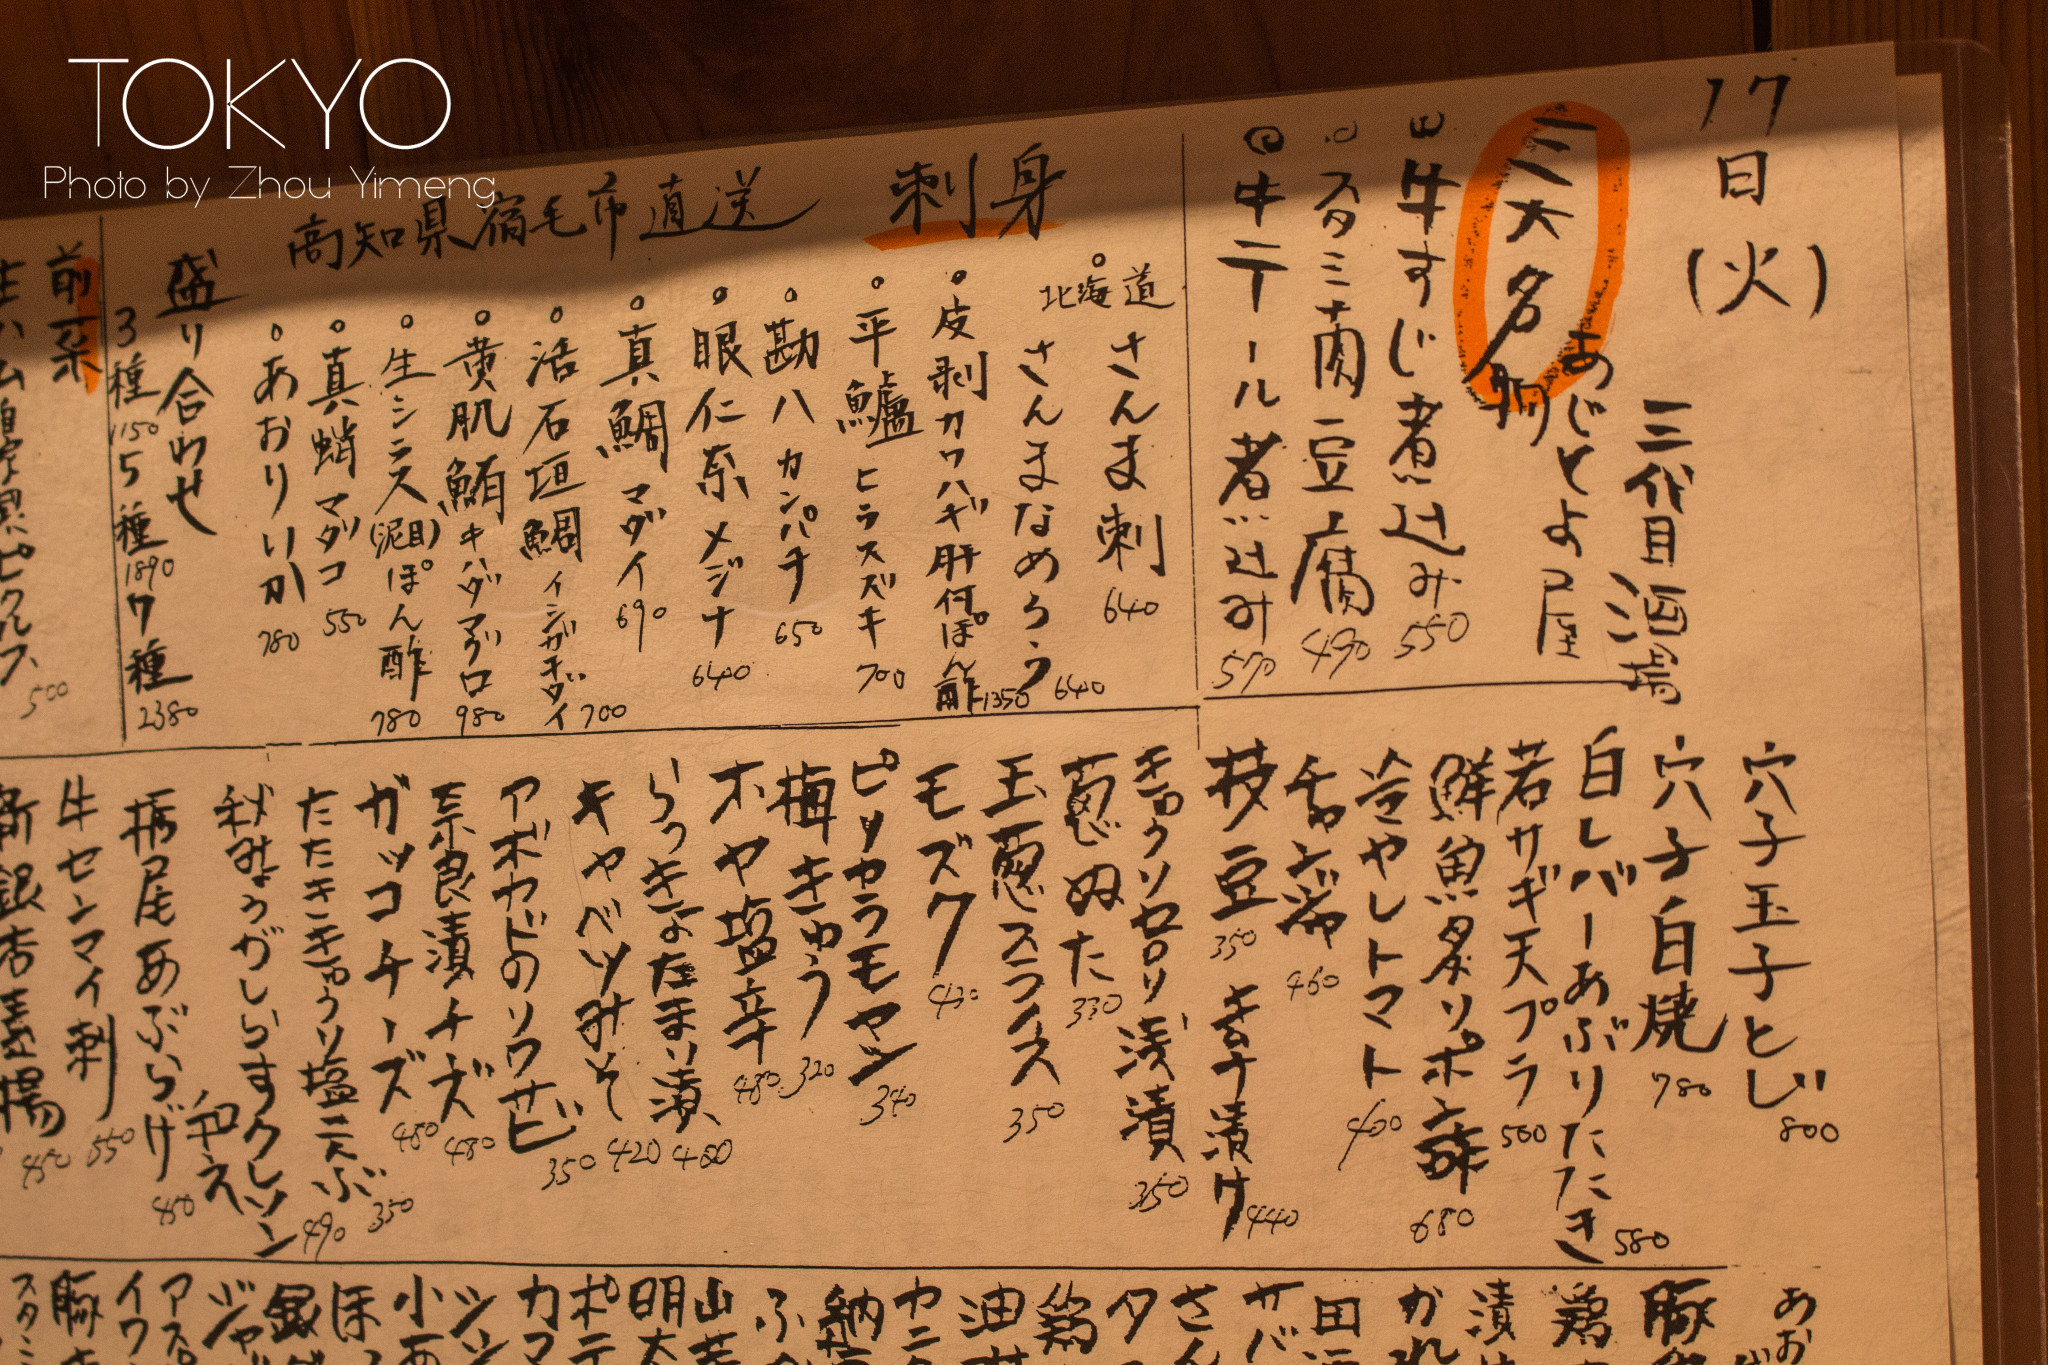 TOKYO
Photo by Zhou Yimeng
17日(火)
三代目酒場
あじとよ屋
三大名物
牛すじ煮込み 550
スタミナ肉豆腐 490
牛テール煮込み 570
刺身
高知県宿毛市直送
北海道
さんま刺 640
さんまなめろう 640
皮剥カワハギ肝付ぽん酢 1350
平鱸ヒラスズキ 700
勘八カンパチ 650
眼仁奈メジナ 640
真鯛マダイ 690
活石垣鯛イシガキダイ 700
黄肌鮪キハダマグロ 980
生シラス(泥目)ぽん酢 780
真蛸マダコ 550
あおりいか 780
盛り合わせ
3種 1150 5種 1890 7種 2380
前菜
生ハム自家製ピクルス 500
穴子玉子とじ 800
穴子白焼 780
白レバーあぶりたたき 580
若サギ天プラ 500
鮮魚炙りポン酢 680
冷やしトマト 400
チャンジャ 460
枝豆 350
キムチ漬け 440
きゅうりソロリ浅漬 350
葱ぬた 330
玉葱スライス 350
モズク 430
ピリカラモヤシ 340
梅きゅう 320
ホヤ塩辛 480
らっきょたまり漬 480
キャベツみそ 420
アボカドのワサビ 350
奈良漬チーズ 480
ガッコチーズ 480
たたききゅうり塩こんぶ 350
秋みょうがしらすクレソン和え 490
栃尾あぶらげ 480
牛センマイ刺 550
新銀杏素揚 450